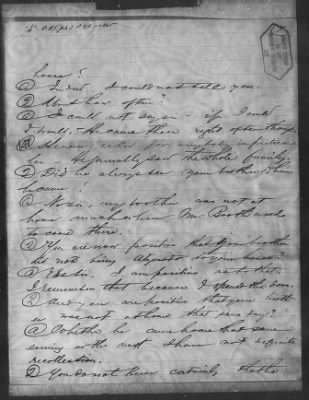 house?
A Indeed I could not tell you.
Q About how often?
A I could not say sir - if I could
I would. He came there right often though.
A He never asked for anybody in particu
lar - He generally saw the whole family.
Q Did he always see your brother when
he came?
A No sir, my brother was not at
home much when Mr Booth used
to come there.
Q You are now positive that your brother
did not bring Atzerodt to your house?
A Yes sir. I am positive as to that
I remember that because I opened the door.
Q And you are positive that your broth
er was not at home that same day?
A Whether he came home that same
evening or the next I have not definite
recollection.
Q You do not know certainly that he